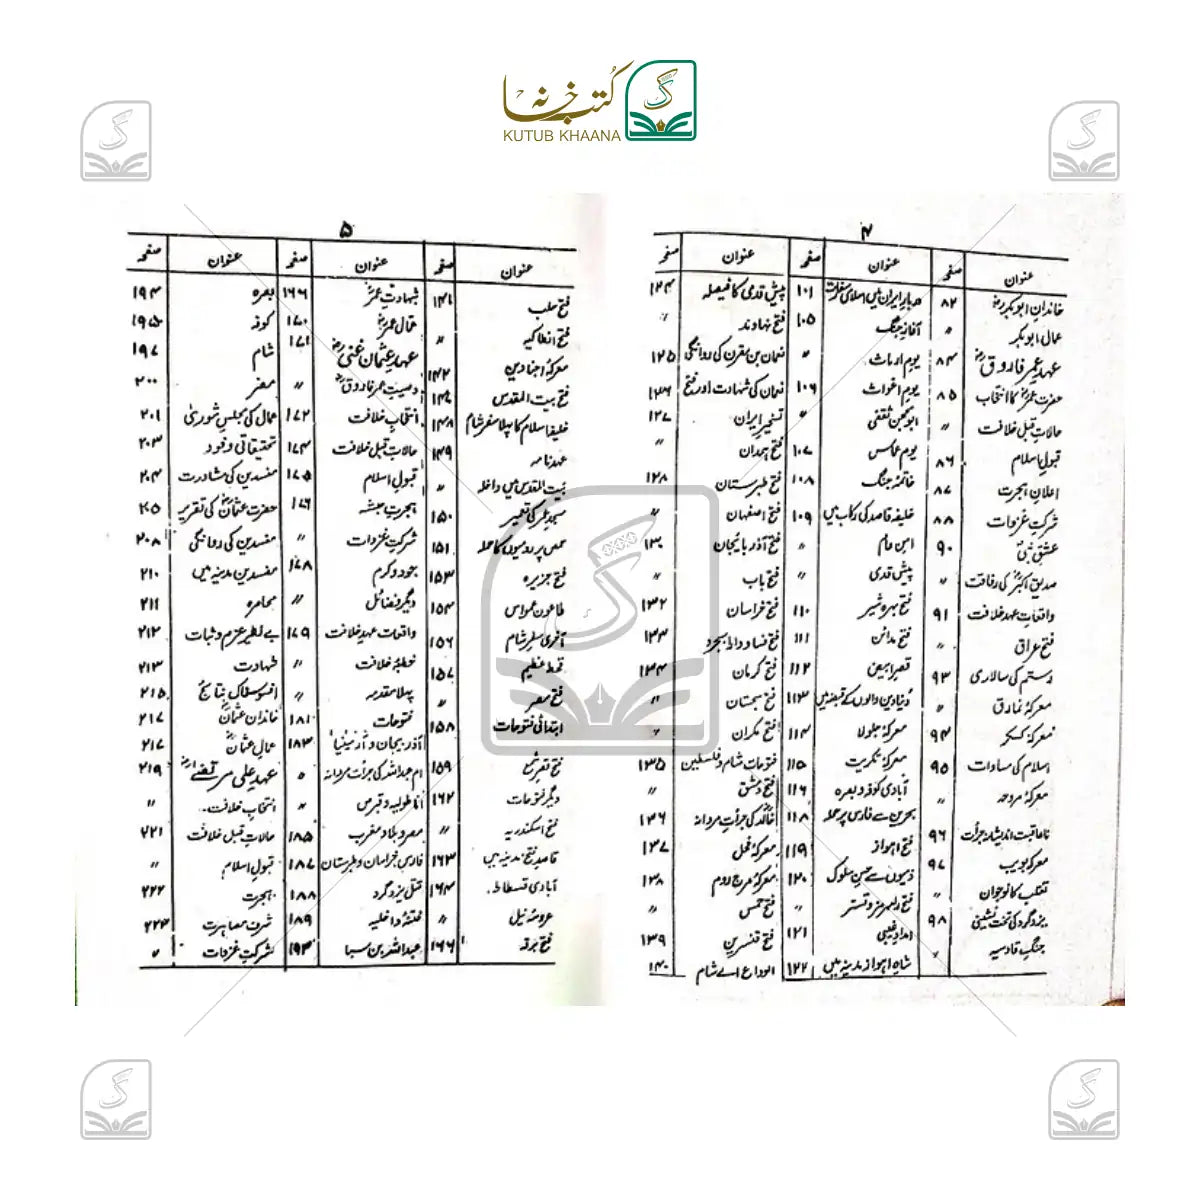 کتب خانہ
KUTUB KHAANA
۴
عنوان صفحہ عنوان صفحہ عنوان صفحہ
خاندان ابوبکرؓ ۸۲
عمال ابوبکر 〃
عہد عمر فاروقؓ ۸۴
حضرت عمرؓ کا انتخاب ۸۵
حالات قبل خلافت 〃
قبول اسلام ۸۶
اعلان ہجرت ۸۷
شرکت غزوات ۸۸
عشق نبیؐ ۹۰
صدیق اکبرؓ کی رفاقت 〃
واقعات عہد خلافت ۹۱
فتح عراق 〃
رستم کی سالاری ۹۳
معرکۂ نمارق 〃
معرکۂ کسکر ۹۴
اسلام کی مساوات ۹۵
معرکۂ مروحہ 〃
ناعاقبت اندیشانہ جرأت ۹۶
معرکہ بویب ۹۷
تغلب کا نوجوان 〃
یزدگرد کی تخت نشینی ۹۸
جنگ قادسیہ 〃
دربار ایران میں اسلامی سفارت ۱۰۱
آغاز جنگ ۱۰۵
یوم ارماث 〃
یوم اغواث ۱۰۶
ابو محجن ثقفی 〃
یوم عماس ۱۰۷
خاتمۂ جنگ ۱۰۸
خلیفہ قاصد کی رکاب میں ۱۰۹
امن عام 〃
پیش قدمی 〃
فتح بہرہ شیر ۱۱۰
فتح مدائن ۱۱۱
قصر ابیض ۱۱۲
دنیا دین والوں کے قبضہ میں ۱۱۳
معرکۂ جلولا ۱۱۴
معرکۂ تکریت ۱۱۵
آبادی کوفہ و بصرہ ۱۱۶
بحرین سے فارس پر حملہ ۱۱۸
فتح اہواز ۱۱۹
ذمیوں سے حسن سلوک ۱۲۰
فتح رامہرمز و تستر 〃
امداد غیبی ۱۲۱
شاہ اہواز مدینہ میں ۱۲۲
پیش قدمی کا فیصلہ ۱۲۴
فتح نہاوند 〃
نعمان بن مقرن کی روانگی ۱۲۵
نعمان کی شہادت اور فتح ۱۲۶
تسخیر ایران ۱۲۷
فتح ہمدان 〃
فتح طبرستان ۱۲۸
فتح اصفہان 〃
فتح آذربائیجان ۱۳۰
فتح باب 〃
فتح خراسان ۱۳۲
فتح فسا و دارابجرد ۱۳۳
فتح کرمان ۱۳۴
فتح سجستان 〃
فتح مکران 〃
فتوحات شام و فلسطین ۱۳۵
فتح دمشق 〃
خالدؓ کی جرأت مردانہ ۱۳۶
معرکۂ فحل ۱۳۷
معرکۂ مرج روم ۱۳۸
فتح حمص 〃
فتح قنسرین ۱۳۹
الوداع اے شام ۱۴۰
۵
عنوان صفحہ عنوان صفحہ عنوان صفحہ
فتح حلب ۱۴۱
فتح انطاکیہ 〃
معرکۂ اجنادین ۱۴۲
فتح بیت المقدس
خلیفہ اسلام کا پہلا سفر شام ۱۴۸
عہد نامہ ۱۴۹
بیت المقدس میں داخلہ 〃
مسجد عمر کی تعمیر ۱۵۰
حمص پر رومیوں کا حملہ ۱۵۱
فتح جزیرہ ۱۵۳
طاعون عمواس ۱۵۴
آخری سفر شام ۱۵۶
قحط عظیم ۱۵۷
فتح مصر 〃
ابتدائی فتوحات ۱۵۸
فتح قصر شمع ۱۵۹
دیگر فتوحات ۱۶۲
فتح اسکندریہ 〃
قاصد فتح مدینہ میں ۱۶۳
آبادی فسطاط ۱۶۴
عروسۂ نیل 〃
فتح برقہ ۱۶۶
شہادت عمرؓ ۱۶۶
عمال عمرؓ ۱۷۰
عہد عثمان غنیؓ ۱۷۱
وصیت عمر فاروقؓ 〃
انتخاب خلافت ۱۷۲
حالات قبل خلافت ۱۷۴
قبول اسلام ۱۷۵
ہجرت حبشہ ۱۷۶
شرکت غزوات 〃
جود و کرم ۱۷۸
دیگر فضائل 〃
واقعات عہد خلافت ۱۷۹
خطبۂ خلافت 〃
پہلا مقدمہ 〃
فتوحات ۱۸۱
آذربیجان و آرمینیا ۱۸۳
ام عبداللہ کی جرأت مردانہ
اناطولیہ و قبرس 〃
مصر و بلاد مغرب ۱۸۵
فارس خراسان و طبرستان ۱۸۷
قتل یزدگرد ۱۸۸
فتنۂ داخلیہ ۱۸۹
عبداللہ بن سبا ۱۹۳
بصرہ ۱۹۴
کوفہ ۱۹۵
شام ۱۹۷
مصر ۲۰۰
عمال کی مجلس شوریٰ ۲۰۱
تحقیقاتی وفود ۲۰۳
مفسدین کی مشاورت ۲۰۴
حضرت عثمانؓ کی تقریر ۲۰۵
مفسدین کی روانگی ۲۰۸
مفسدین مدینہ میں ۲۱۰
محاصرہ ۲۱۱
بے نظیر عزم و ثبات ۲۱۲
شہادت ۲۱۳
افسوسناک نتائج ۲۱۵
خاندان عثمانؓ ۲۱۷
عمال عثمانؓ ۲۱۷
عہد علی مرتضیٰؓ ۲۱۹
انتخاب خلافت 〃
حالات قبل خلافت ۲۲۱
قبول اسلام 〃
ہجرت ۲۲۲
شرف مصاہرت ۲۲۳
شرکت غزوات 〃